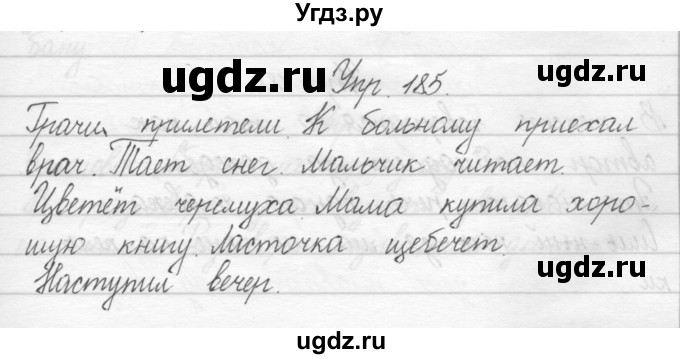 Угдз.ру
ugdz.ru
ugdz.ru
Упр. 185.
Грачи прилетели. К больному приехал
врач. Тает снег. Мальчик читает.
Цветёт черемуха. Мама купила хоро-
шую книгу. Ласточка щебечет.
ugdz.ru
Наступил вечер.
ugdz.ru